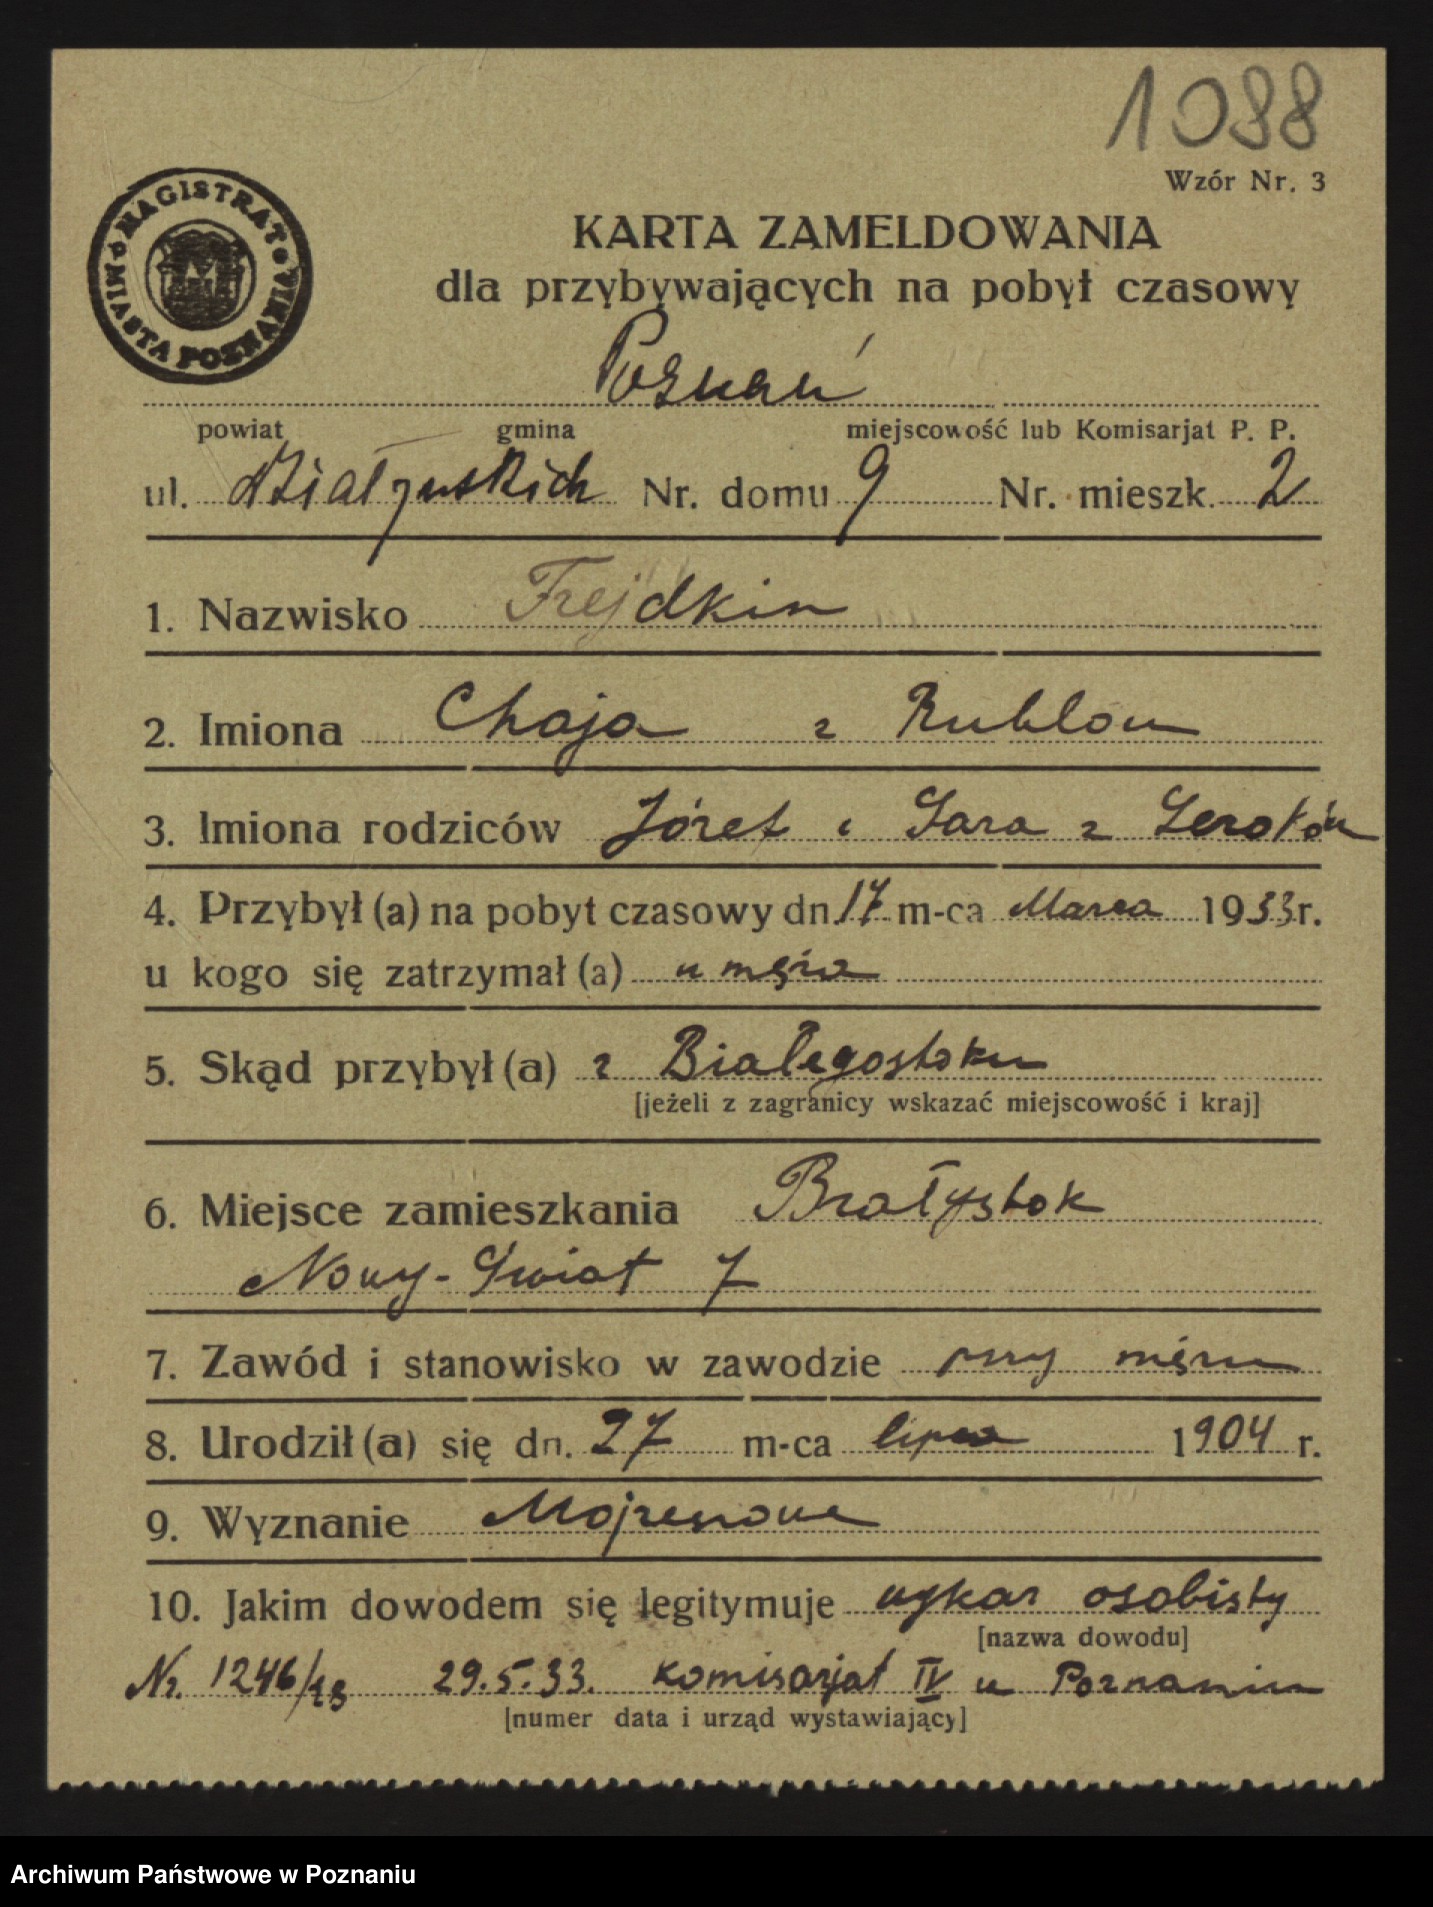 1088
Wzór Nr. 3
MAGISTRAT MIASTA POZNANIA
KARTA ZAMELDOWANIA
dla przybywających na pobyt czasowy
Poznań
powiat gmina miejscowość lub Komisarjat P. P.
ul. Działyńskich Nr. domu 9 Nr. mieszk. 2
1. Nazwisko Frejdkin
2. Imiona Chaja z Rublów
3. Imiona rodziców Józef i Sara z
4. Przybył (a) na pobyt czasowy dn. 17 m-ca Marca 1933 r.
u kogo się zatrzymał (a) u męża
5. Skąd przybył (a) z Białegostoku
[jeżeli z zagranicy wskazać miejscowość i kraj]
6. Miejsce zamieszkania Białystok
Nowy-Świat 7
7. Zawód i stanowisko w zawodzie przy mężu
8. Urodził (a) się dn. 27 m-ca lipca 1904 r.
9. Wyznanie Mojżeszowe
10. Jakim dowodem się legitymuje wykaz osobisty
[nazwa dowodu]
Nr. 1246/33 29.5.33. Komisarjat IV w Poznaniu
[numer data i urząd wystawiający]
Archiwum Państwowe w Poznaniu